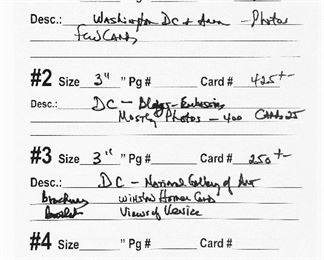 Desc.: Washington DC + Area - Photos
Few Cards
#2 Size 3" " Pg # Card # 425+-
Desc.: DC - Bldgs -
Mostly Photos - 400 Cards 25
#3 Size 3" " Pg # Card # 250+-
Desc.: DC - National Gallery of Art
Brochures Winslow Homer Card
Booklet Views of Venice
#4 Size " Pg # Card #